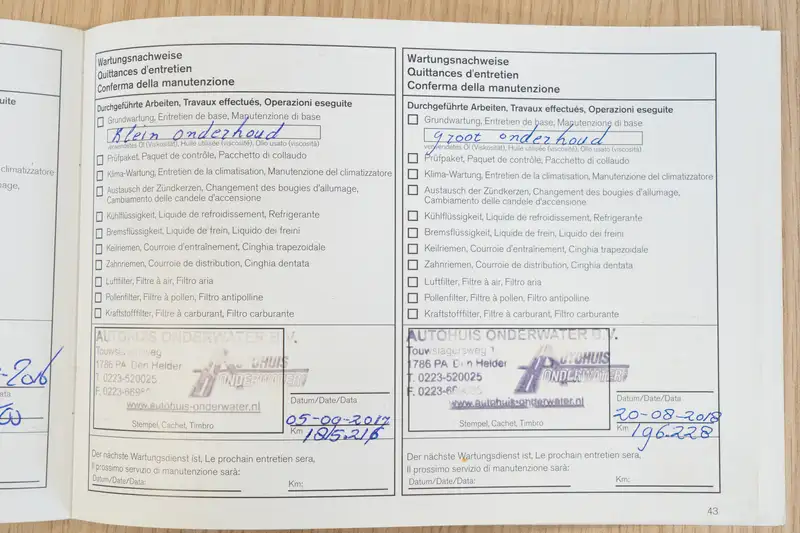 uite
climatizzatore
nage,
Wartungsnachweise
Quittances d'entretien
Conferma della manutenzione
Durchgeführte Arbeiten, Travaux effectués, Operazioni eseguite
Grundwartung, Entretien de base, Manutenzione di base
Klein onderhoud
verwendetes Öl (Viskosität), Huile utilisée (viscosité), Olio usato (viscosità)
Prüfpaket, Paquet de contrôle, Pacchetto di collaudo
Klima-Wartung, Entretien de la climatisation, Manutenzione del climatizzatore
Austausch der Zündkerzen, Changement des bougies d'allumage,
Cambiamento delle candele d'accensione
Kühlflüssigkeit, Liquide de refroidissement, Refrigerante
Bremsflüssigkeit, Liquide de frein, Liquido dei freini
Keilriemen, Courroie d'entraînement, Cinghia trapezoidale
Zahnriemen, Courroie de distribution, Cinghia dentata
Luftfilter, Filtre à air, Filtro aria
Pollenfilter, Filtre à pollen, Filtro antipolline
Kraftstofffilter, Filtre à carburant, Filtro carburante
AUTOHUIS ONDERWATER B.V.
1786 PA Den Helder
T. 0223-520025
AUTOHUIS
ONDERWATER
www.autohuis-onderwater.nl
Stempel, Cachet, Timbro
Datum/Date/Data
05-09-2017
Km
Der nächste Wartungsdienst ist, Le prochain entretien sera,
Il prossimo servizio di manutenzione sarà:
Datum/Date/Data:
Km:
Wartungsnachweise
Quittances d'entretien
Conferma della manutenzione
Durchgeführte Arbeiten, Travaux effectués, Operazioni eseguite
Grundwartung, Entretien de base, Manutenzione di base
groot onderhoud
verwendetes Öl (Viskosität), Huile utilisée (viscosité), Olio usato (viscosità)
Prüfpaket, Paquet de contrôle, Pacchetto di collaudo
Klima-Wartung, Entretien de la climatisation, Manutenzione del climatizzatore
Austausch der Zündkerzen, Changement des bougies d'allumage,
Cambiamento delle candele d'accensione
Kühlflüssigkeit, Liquide de refroidissement, Refrigerante
Bremsflüssigkeit, Liquide de frein, Liquido dei freini
Keilriemen, Courroie d'entraînement, Cinghia trapezoidale
Zahnriemen, Courroie de distribution, Cinghia dentata
Luftfilter, Filtre à air, Filtro aria
Pollenfilter, Filtre à pollen, Filtro antipolline
Kraftstofffilter, Filtre à carburant, Filtro carburante
AUTOHUIS ONDERWATER B.V.
Touwslagersweg 1
1786 PA Den Helder
T. 0223-520025
AUTOHUIS
ONDERWATER
www.autohuis-onderwater.nl
Stempel, Cachet, Timbro
Datum/Date/Data
20-08-2018
Km 196.228
Der nächste Wartungsdienst ist, Le prochain entretien sera,
Il prossimo servizio di manutenzione sarà:
Datum/Date/Data:
Km:
43